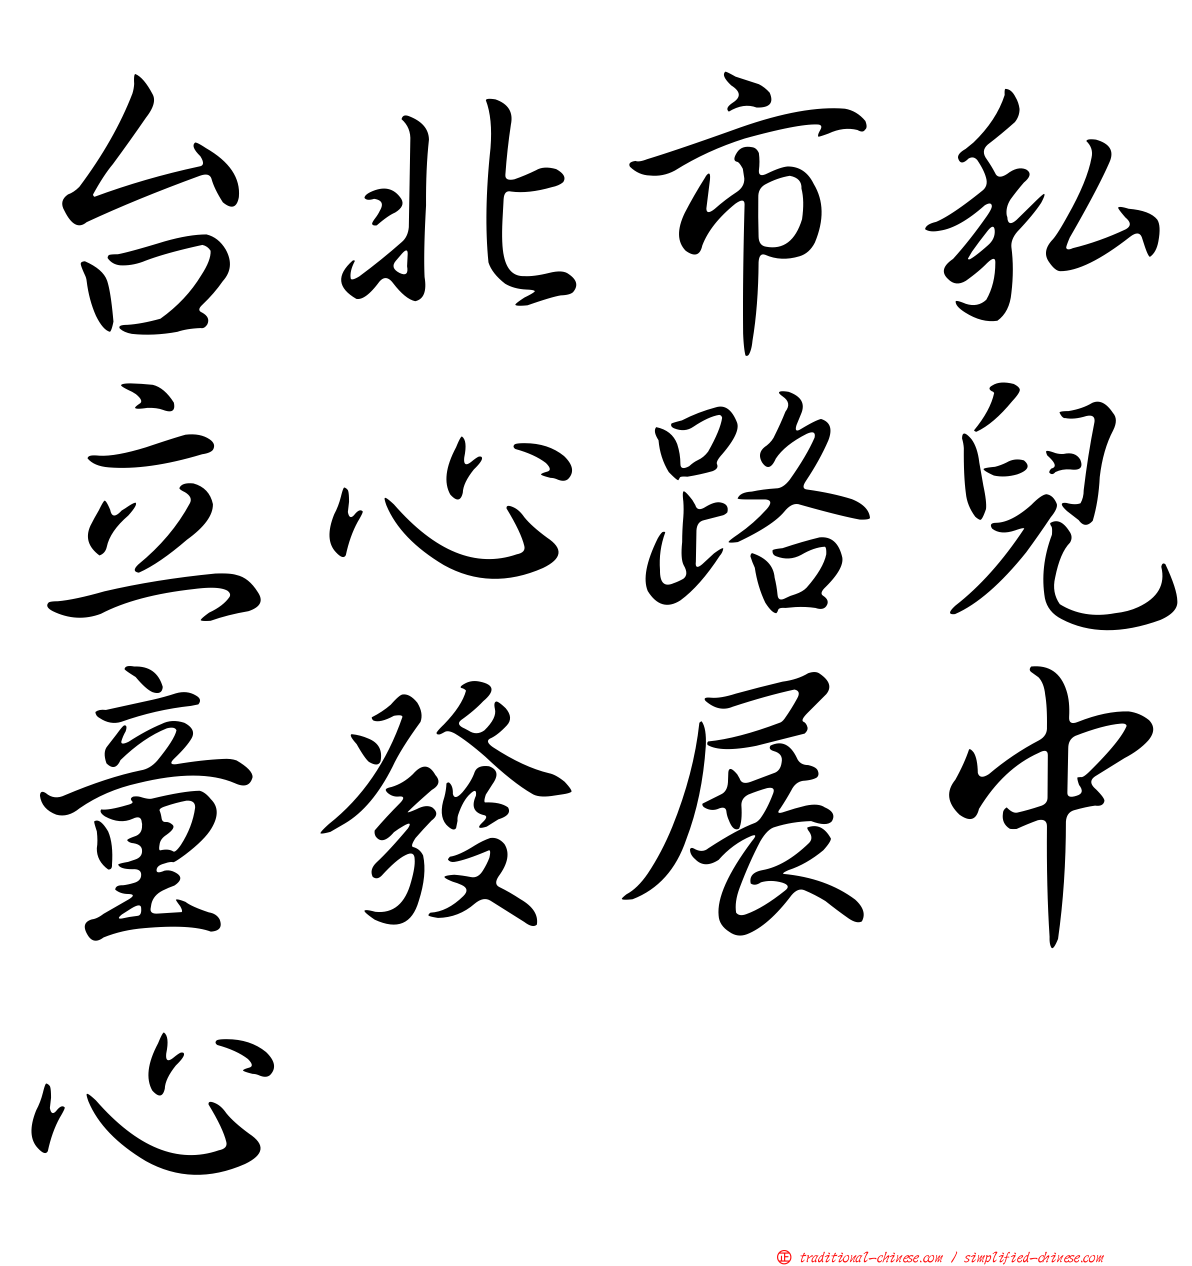 台北市私
立心路兒
童發展中
心
正 traditional-chinese.com / simplified-chinese.com